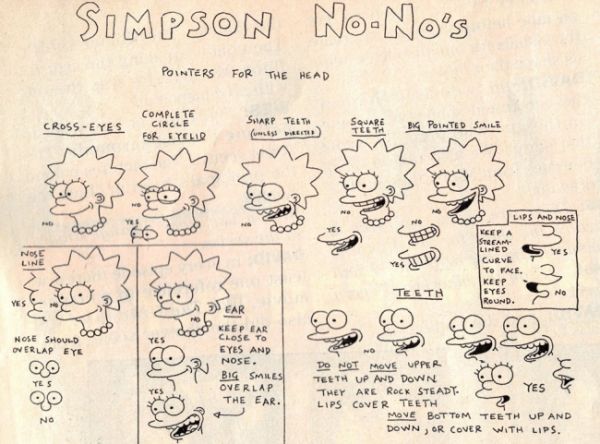 SIMPSON NO-NO'S
POINTERS FOR THE HEAD
CROSS-EYES
NO
COMPLETE
CIRCLE
FOR EYELID
NO
YES
SHARP TEETH
(UNLESS DIRECTED)
NO
SQUARE
TEETH
NO
YES
BIG POINTED SMILE
NO
NO
YES
LIPS AND NOSE
KEEP A
STREAM-
LINED
CURVE
TO FACE.
KEEP
EYES
ROUND.
YES
NO
NOSE
LINE
YES
NO
NOSE SHOULD
OVERLAP EYE
YES
NO
NO
EAR
KEEP EAR
CLOSE TO
EYES AND
NOSE.
BIG SMILES
OVERLAP
THE EAR.
YES
YES
TEETH
NO
NO
DO NOT MOVE UPPER
TEETH UP AND DOWN
THEY ARE ROCK STEADY.
LIPS COVER TEETH
MOVE BOTTOM TEETH UP AND
DOWN, OR COVER WITH LIPS.
YES